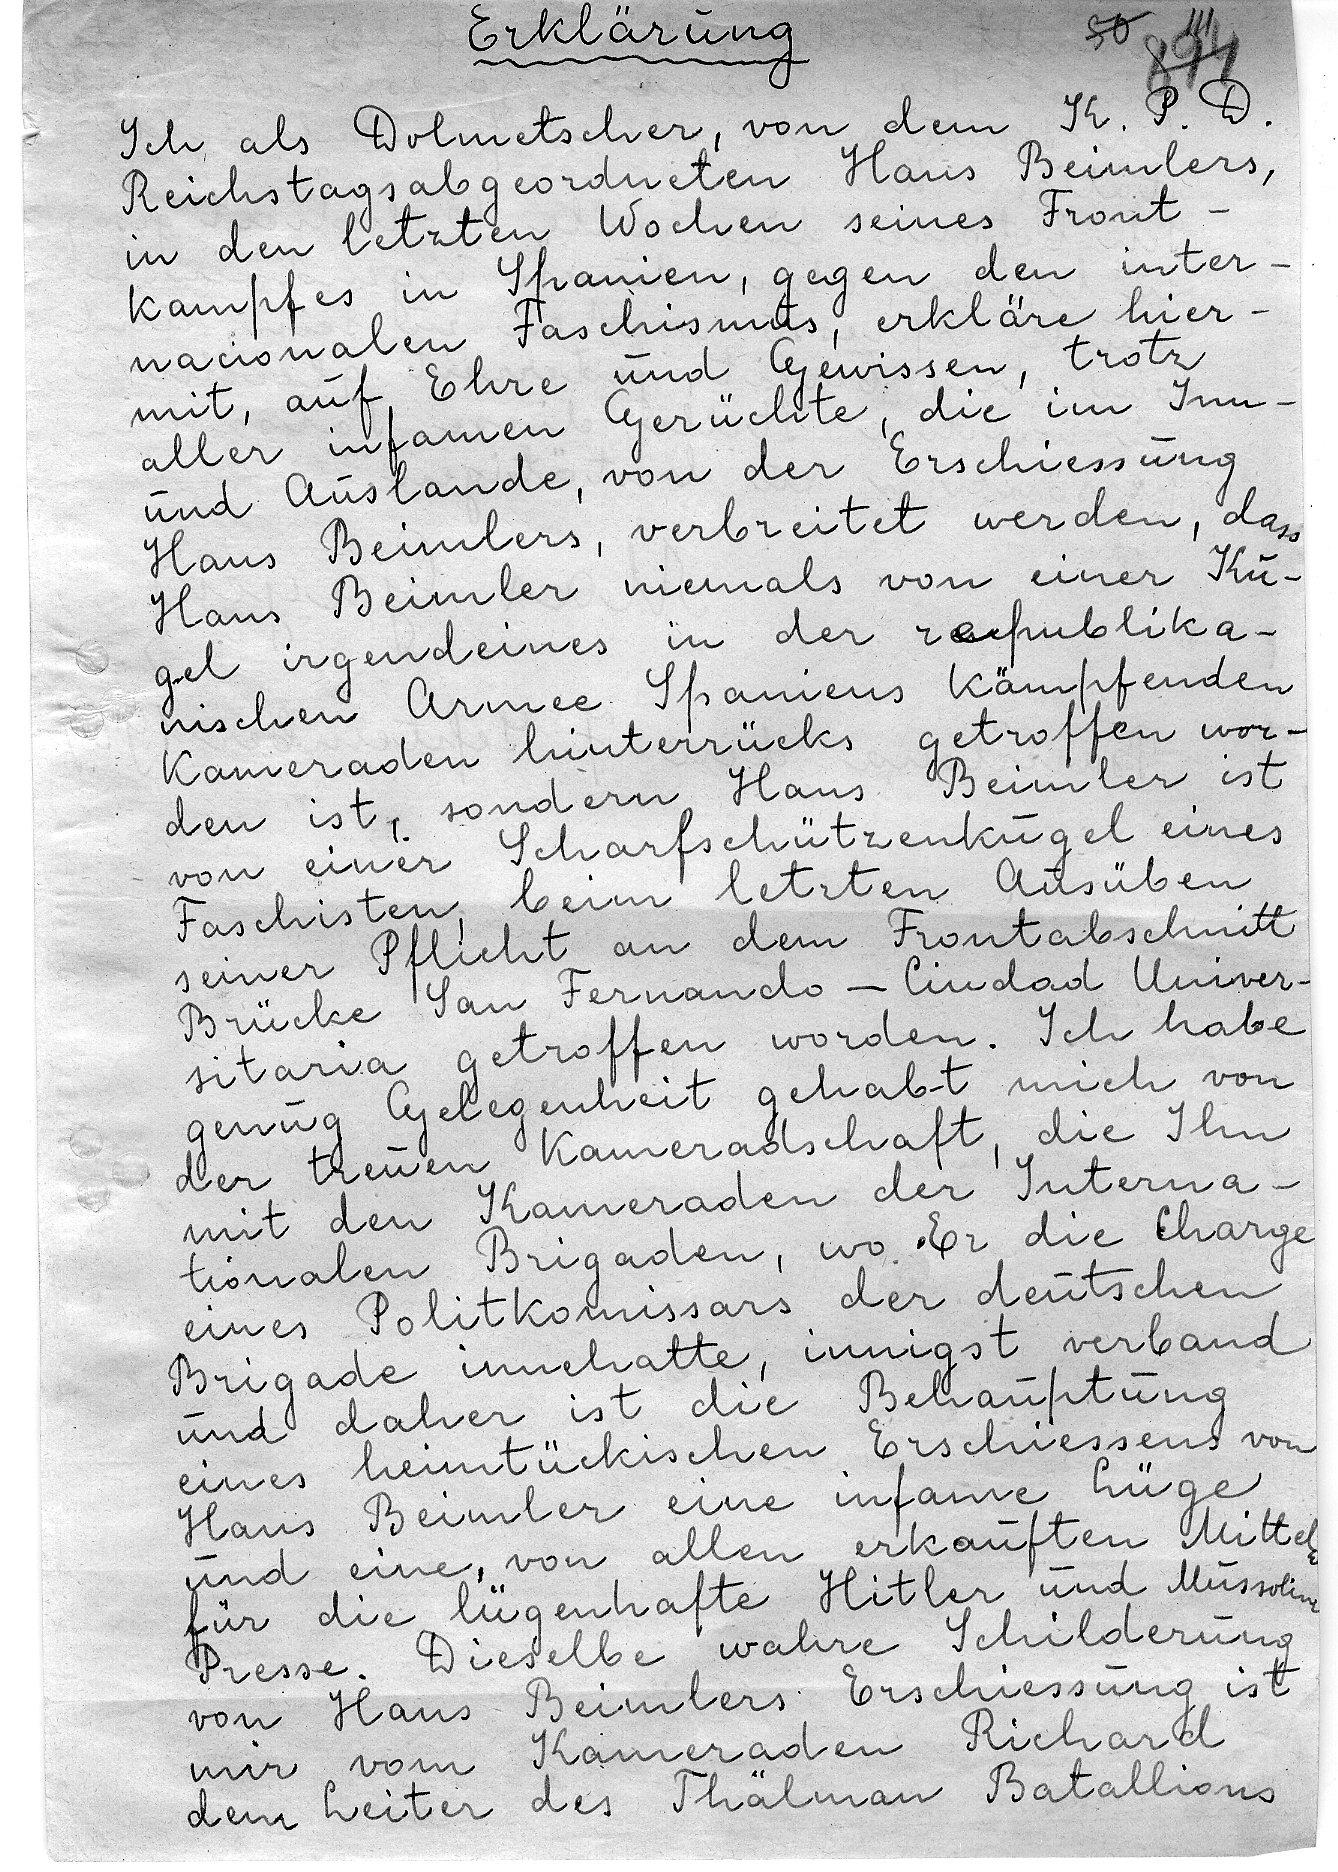 Erklärung
50
Ich als Dolmetscher, von dem K. P. D.
Reichstagsabgeordneten Hans Beimlers,
in den letzten Wochen seines Front-
kampfes in Spanien, gegen den inter-
nacionalen Faschismus, erkläre hier-
mit, auf Ehre und Gewissen, trotz
aller infamen Gerüchte, die im Inn-
und Auslande, von der Erschiessung
Hans Beimlers, verbreitet werden, dass
Hans Beimler niemals von einer Ku-
gel irgendeines in der republika-
nischen Armee Spaniens kämpfenden
Kameraden hinterrücks getroffen wor-
den ist, sondern Hans Beimler ist
von einer Scharfschützenkugel eines
Faschisten, beim letzten Ausüben
seiner Pflicht an dem Frontabschnitt
Brücke San Fernando - Ciudad Univer-
sitaria getroffen worden. Ich habe
genug Gelegenheit gehabt mich von
der treuen Kameradschaft, die Ihn
mit den Kameraden der Interna-
tionalen Brigaden, wo Er die Charge
eines Politkomissars der deutschen
Brigade innehatte, innigst verband
und daher ist die Behauptung
eines heimtückischen Erschiessens von
Hans Beimler eine infame Lüge
und eine, von allen erkauften Mittel
für die lügenhafte Hitler und Mussolini
Presse. Dieselbe wahre Schilderung
von Hans Beimlers Erschiessung ist
mir vom Kameraden Richard
dem Leiter des Thälman Batallions